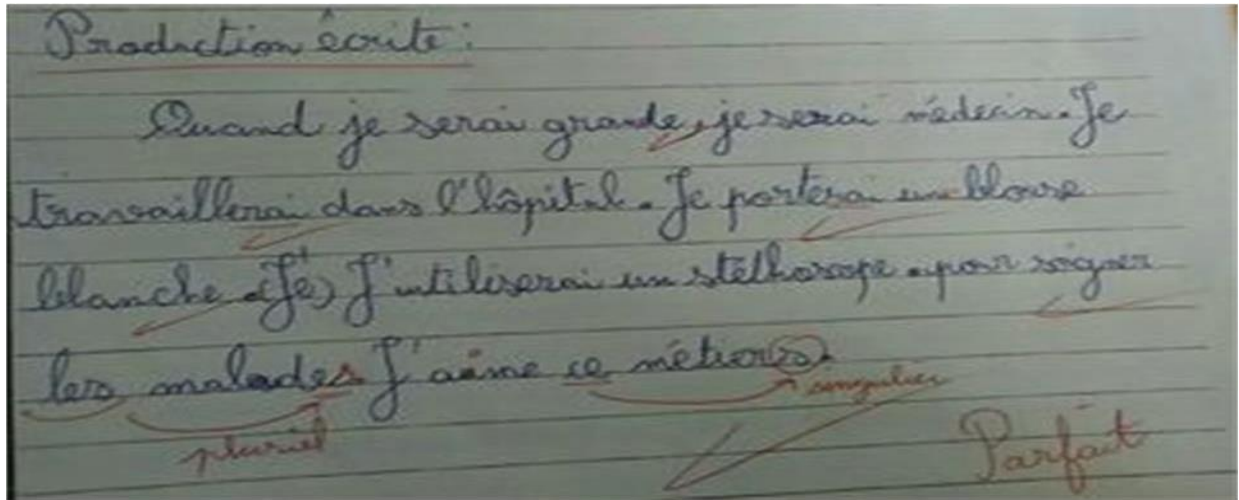 Production écrite :
Quand je serai grande, je serai médecin. Je
travaillerai dans l'hôpital. Je porterai un blouse
blanche. (Je) J'utiliserai un stéthoscope pour soigner
les malades J'aime ce métiers.
singulier
pluriel
Parfait